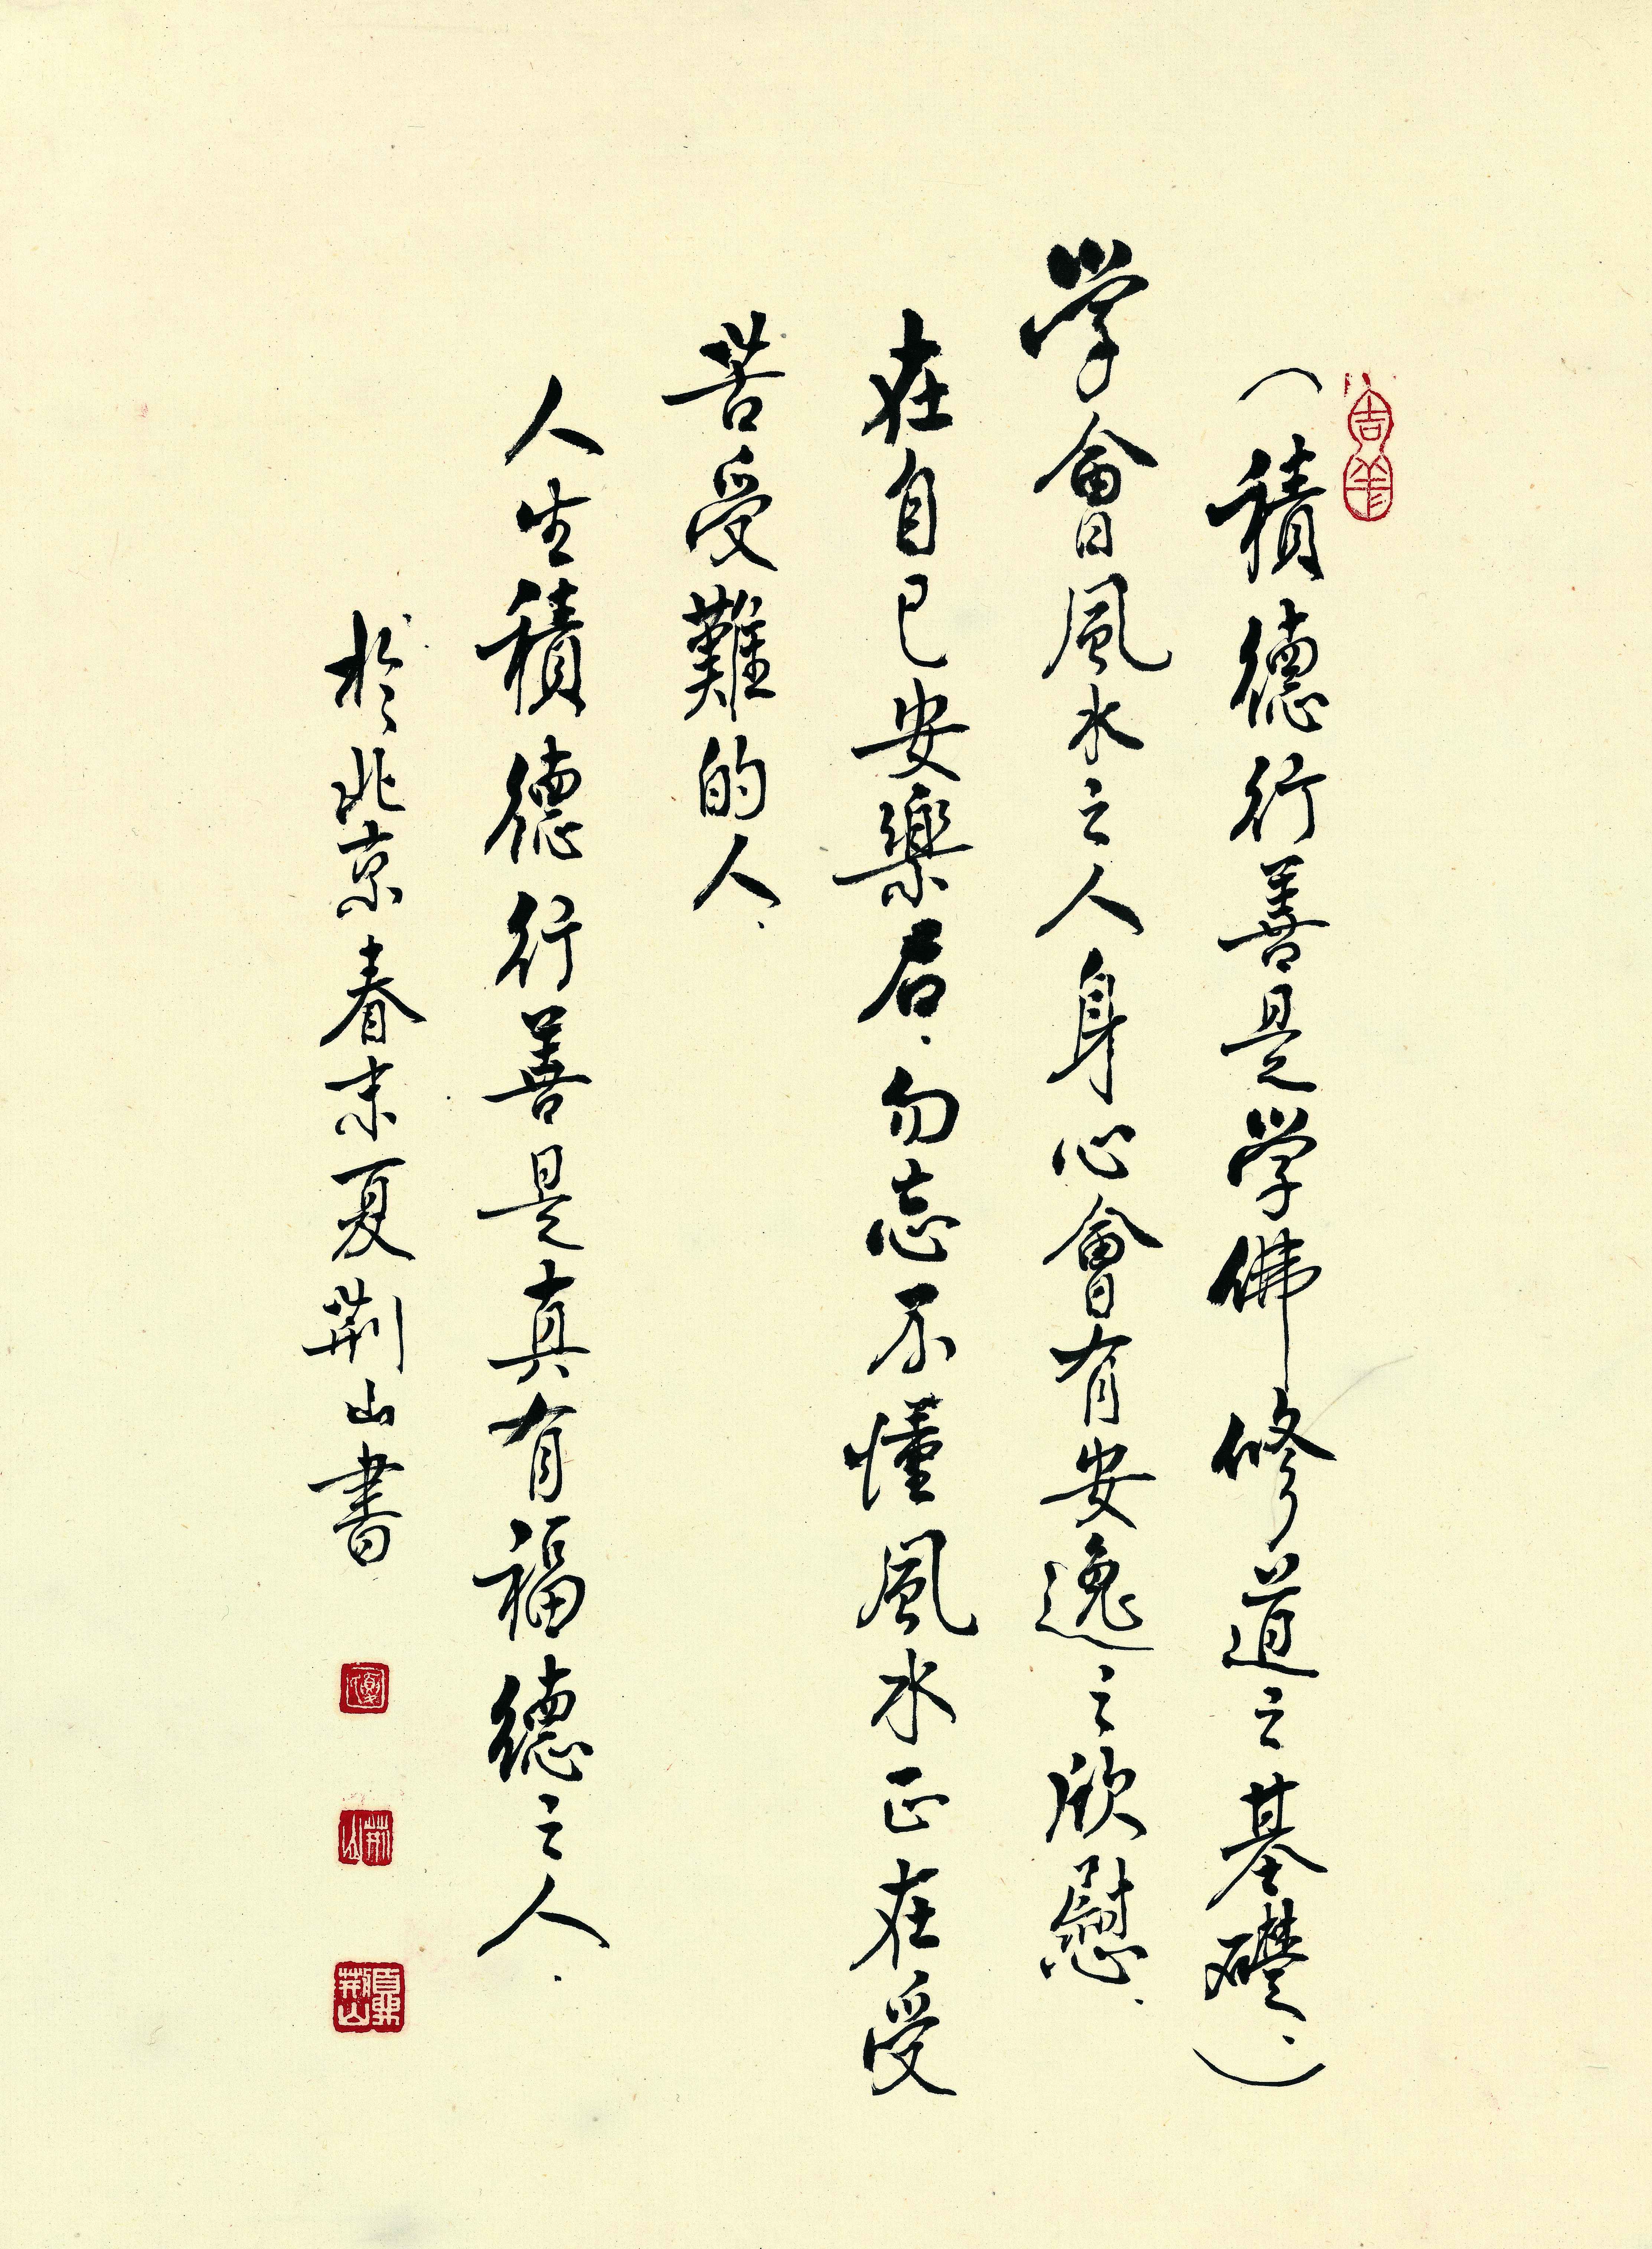 （積德行善是学佛修道之基礎.）
学會風水之人身心會有安逸之欣慰.
在自己安樂后.勿忘不懂風水正在受
苦受難的人.
人生積德行善是真有福德之人.
於北京春末夏荆山書
吉羊
夏
荆山
夏荆山